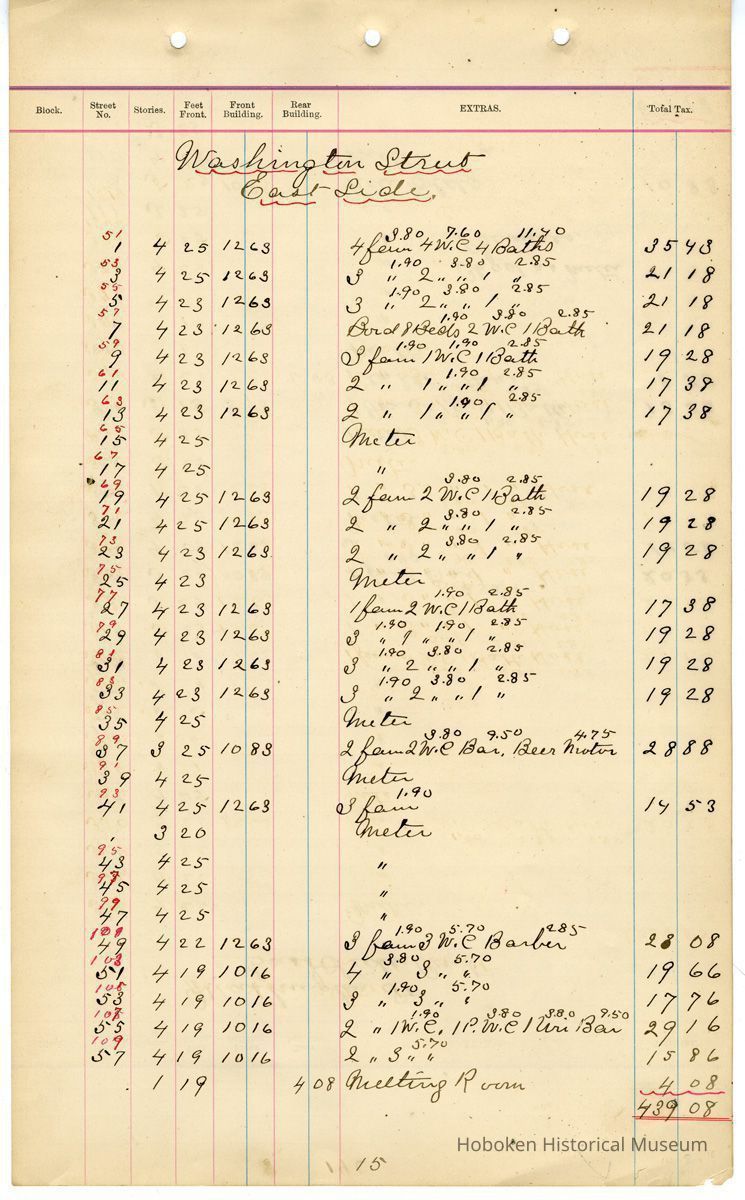 Block. Street No. Stories. Feet Front. Front Building. Rear Building. EXTRAS. Total Tax.
Washington Street
East Side.
51 3.80 7.60 11.40
1 4 25 12 63 4 fam 4 W.C 4 Baths 35 43
53 1.90 3.80 2.85
3 4 25 12 63 3 " 2 " " 1 " 21 18
55 1.90 3.80 2.85
5 4 23 12 63 3 " 2 " " 1 " 21 18
57 1.90 3.80 2.85
7 4 23 12 63 Bord 8 Beds 2 W.C 1 Bath 21 18
59 1.90 1.90 2.85
9 4 23 12 63 3 fam 1 W.C 1 Bath 19 28
61 1.90 2.85
11 4 23 12 63 2 " 1 " " 1 " 17 38
63 1.90 2.85
13 4 23 12 63 2 " 1 " " 1 " 17 38
65
15 4 25 Meter
67
17 4 25 "
69 3.80 2.85
19 4 25 12 63 2 fam 2 W.C 1 Bath 19 28
71 3.80 2.85
21 4 25 12 63 2 " 2 " " 1 " 19 28
73 3.80 2.85
23 4 23 12 63 2 " 2 " " 1 " 19 28
75
25 4 23 Meter
77 1.90 2.85
27 4 23 12 63 1 fam 2 W.C 1 Bath 17 38
79 1.90 1.90 2.85
29 4 23 12 63 3 " 1 " " 1 " 19 28
81 1.90 3.80 2.85
31 4 23 12 63 3 " 2 " " 1 " 19 28
83 1.90 3.80 2.85
33 4 23 12 63 3 " 2 " " 1 " 19 28
85
35 4 25 Meter
89 3.80 9.50 4.75
37 3 25 10 83 2 fam 2 W.C Bar, Beer Motor 28 88
91
39 4 25 Meter
93 1.90
41 4 25 12 63 3 fam 14 53
3 20 Meter
95
43 4 25 "
97
45 4 25 "
99
47 4 25 "
101 1.90 5.70 2.85
49 4 22 12 63 3 fam 3 W.C Barber 23 08
103 3.80 5.70
51 4 19 10 16 4 " 3 " " 19 66
105 1.90 5.70
53 4 19 10 16 3 " 3 " " 17 76
107 1.90 3.80 3.80 9.50
55 4 19 10 16 2 " 1 W.C. 1 P.W.C 1 Uri Bar 29 16
109 5.70
57 4 19 10 16 2 " 3 " " 15 86
1 19 4 08 Melting Room 4 08
439 08
15
Hoboken Historical Museum